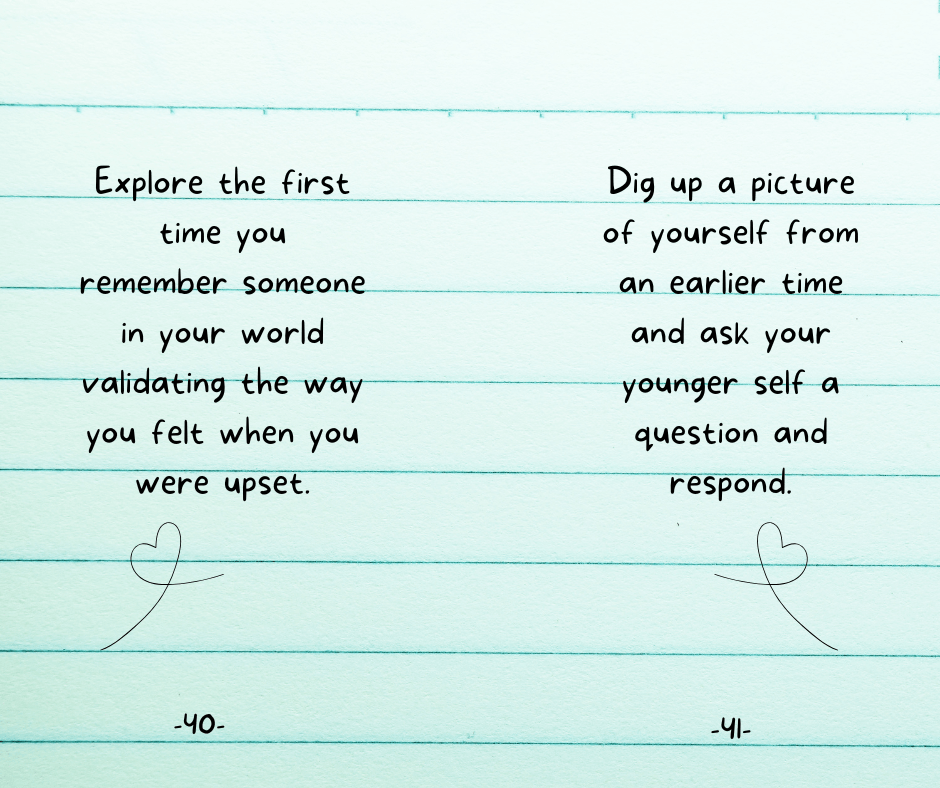 Explore the first
time you
remember someone
in your world
validating the way
you felt when you
were upset.
-40-
Dig up a picture
of yourself from
an earlier time
and ask your
younger self a
question and
respond.
-41-